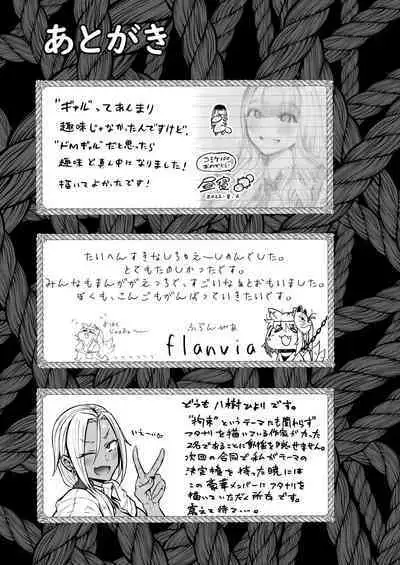 あとがき
"ギャル"ってあんまり
趣味じゃなかったんですけど、
"ドMギャル"だと思ったら
趣味ど真ん中になりました!
描いてよかったです!
たいへんすきなしちゅえーしょんでした。
とてもたのしかったです。
みんなもまんががえっちで、すごいなぁとおもいました。
ぼくも、こんごもがんばっていきたいです。
ふらんびあ
flanvia
いぇーい
どうも 八樹ひよりです。
"拘束"というテーマにも関わらず
フタナリを描いている作家がたった
2名であることに動揺を隠せません。
次回の合同で私がテーマの
決定権を持った暁には
この豪華メンバーにフタナリを
描いていただく所存です。
震えて待て…。